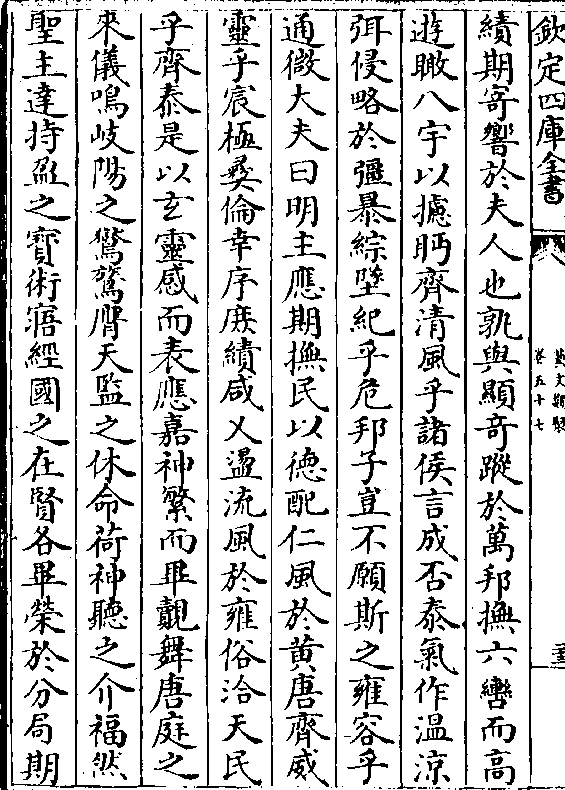 欽定四庫全書
藝文類聚
卷五十七
績期寄響於夫人也孰與顯奇蹤於萬邦撫六轡而高
遊瞰八宇以攄眄齊清風乎諸侯言成否泰氣作溫涼
弭侵略於彊暴綜墜紀乎危邦子豈不願斯之雍容乎
通微大夫曰明主應期撫民以德配仁風於黄唐齊威
靈乎宸極彛倫幸序庶績咸乂盪流風於雍俗洽天民
乎齊泰是以玄靈感而表應嘉神繁而畢覿舞唐庭之
來儀鳴岐陽之鸑鷟膺天監之休命荷神聽之介福然
聖主達持盈之寳術寤經國之在賢各畢榮於分局期